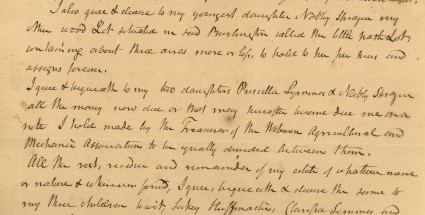 I also give & devise to my youngest daughter Nabby Sprague my
wood Lot situated in said Burlington called the little path Lot
containing about three acres more or less, to hold to her her heirs and
assigns forever.
I give & bequeath to my two daughters Priscilla Symmes & Nabby Sprague
all the money now due or that may hereafter become due me on a
note I hold made by the Treasurer of the Woburn Agricultural and
Mechanic Association to be equally divided between them.
All the rest, residue and remainder of my estate of whatever name
or nature & wherever found, I give, bequeath & devise the same to
my three children to wit,